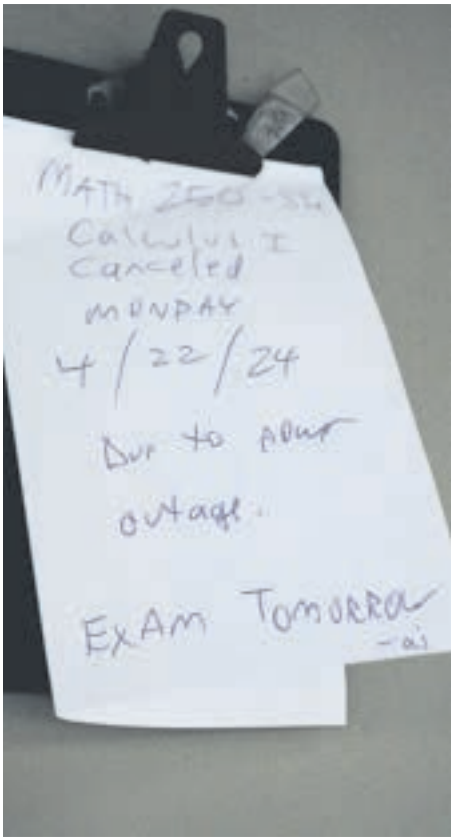 MATH 250
Calculus I
Canceled
MONDAY
4/22/24
Due to power
outage.
EXAM TOMORROW